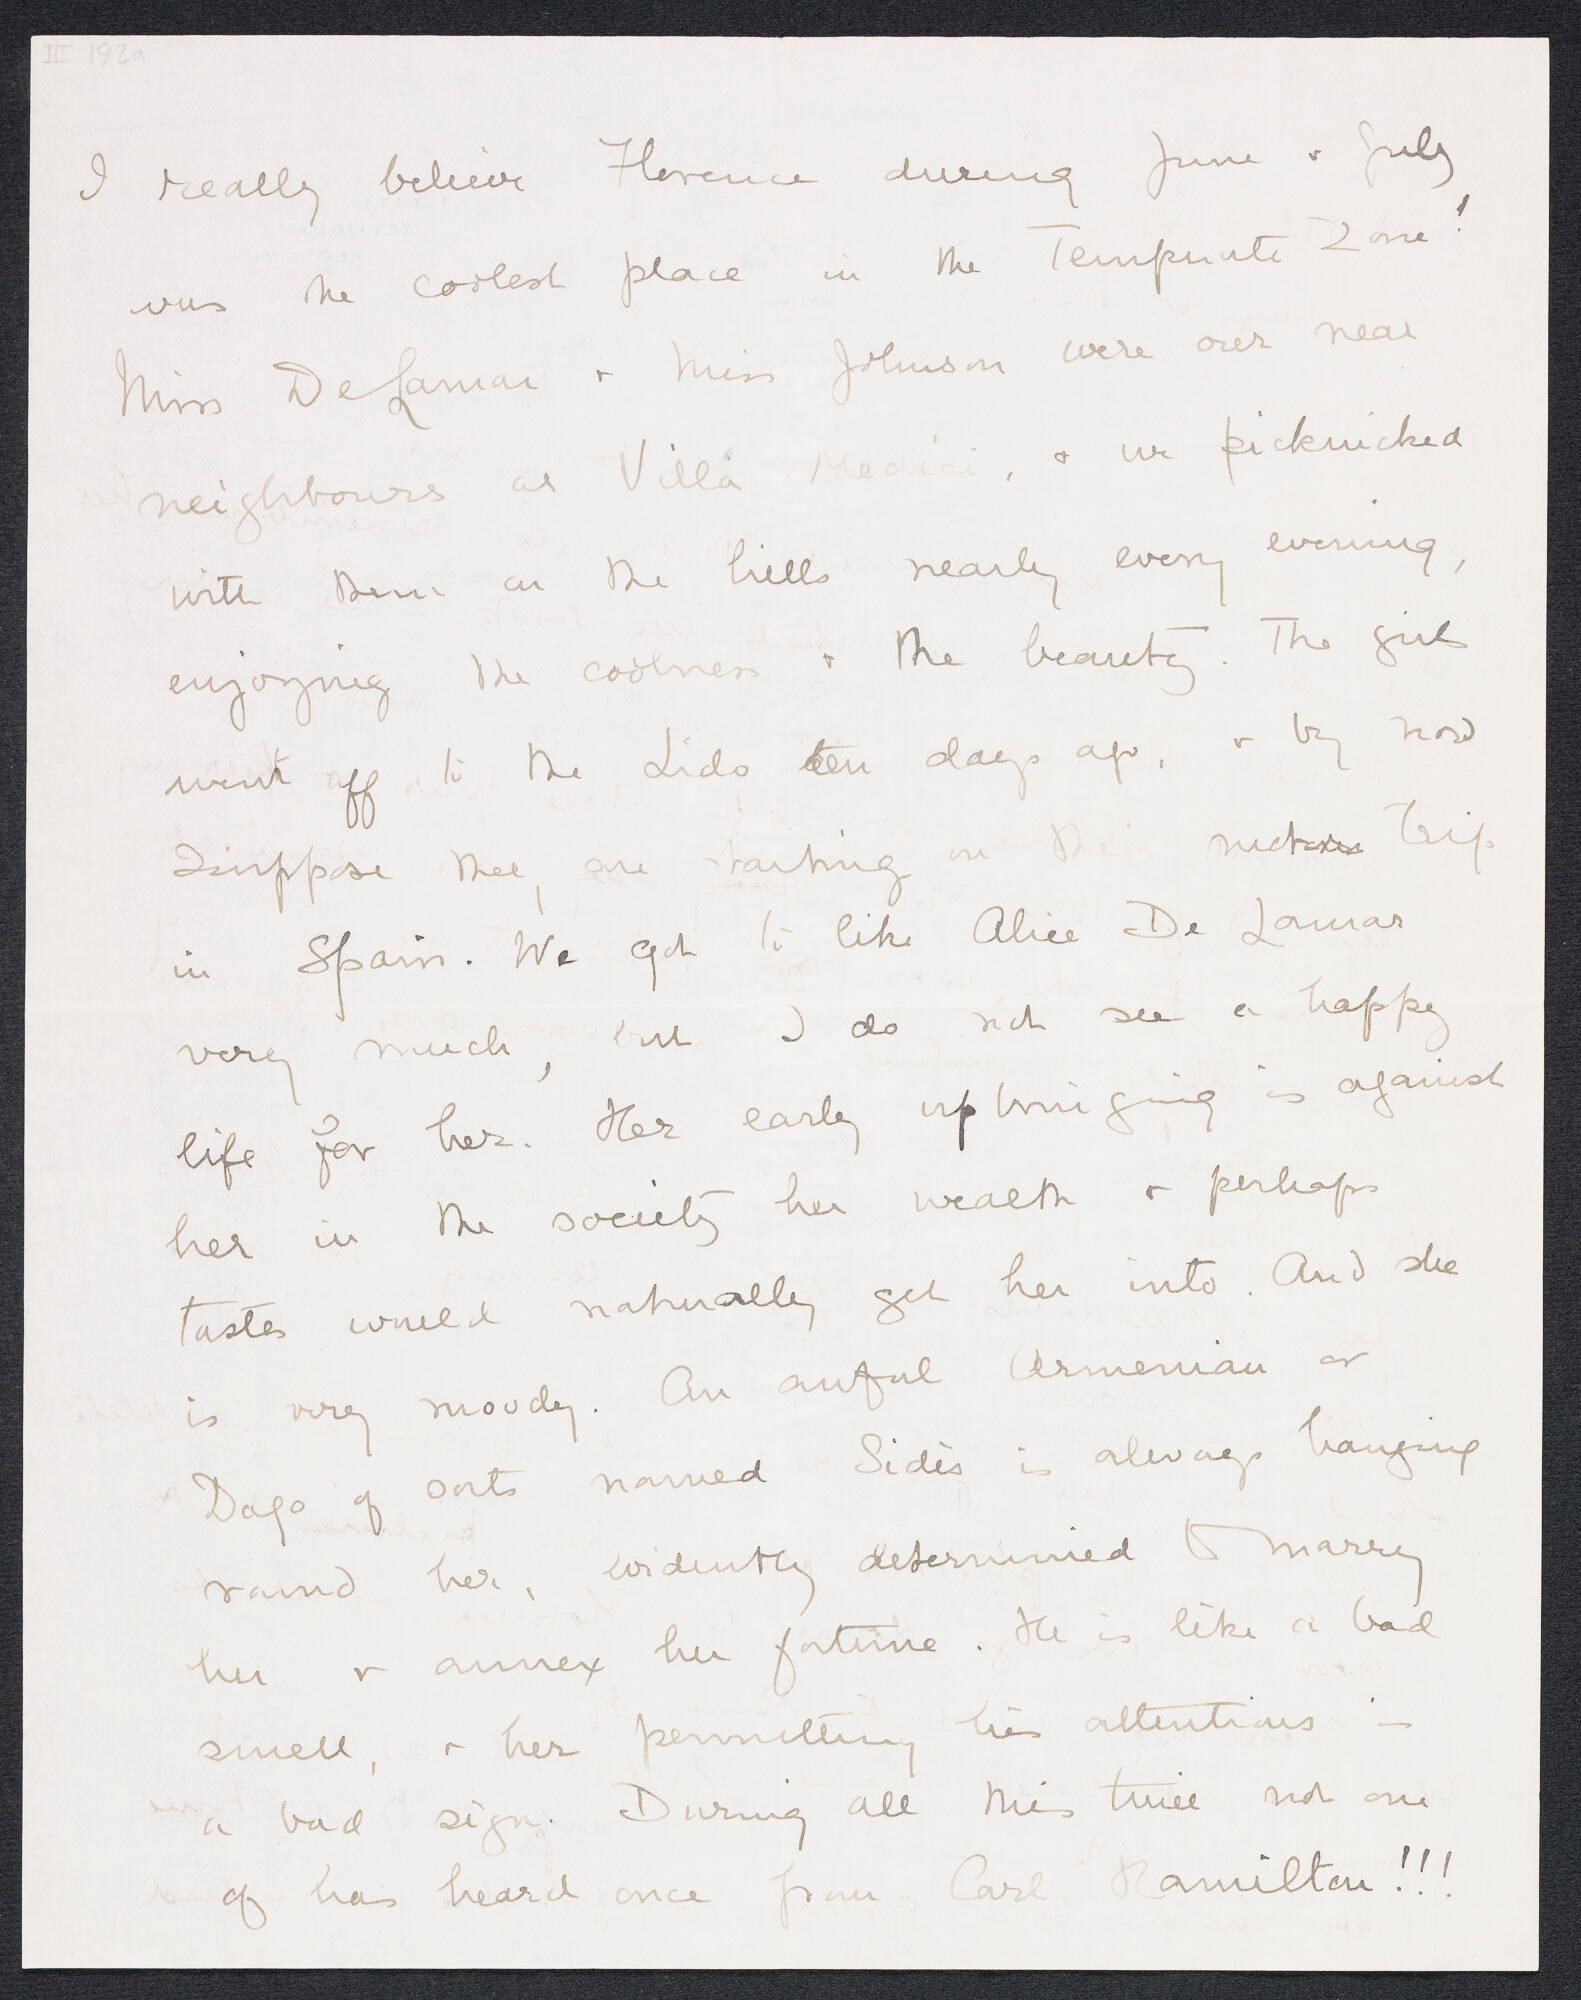 III 1920
I really believe Florence during June & July
was the coolest place in the Temperate Zone!
Miss De Lamar & Miss Johnson were our near
neighbours at Villa Medici, & we picknicked
with them on the hills nearly every evening,
enjoying the coolness & the beauty. The girls
went off to the Lido ten days ago, & by now
I suppose they are starting on their motor trip
in Spain. We got to like Alice De Lamar
very much, but I do not see a happy
life for her. Her early upbringing is against
her in the society her wealth & perhaps
tastes would naturally get her into. And she
is very moody. An awful Armenian or
Dago of sorts named Sidès is always hanging
round her, evidently determined to marry
her & annex her fortune. He is like a bad
smell, & her permitting his attentions is
a bad sign. During all this time not one
of has heard once from Carl Hamilton!!!